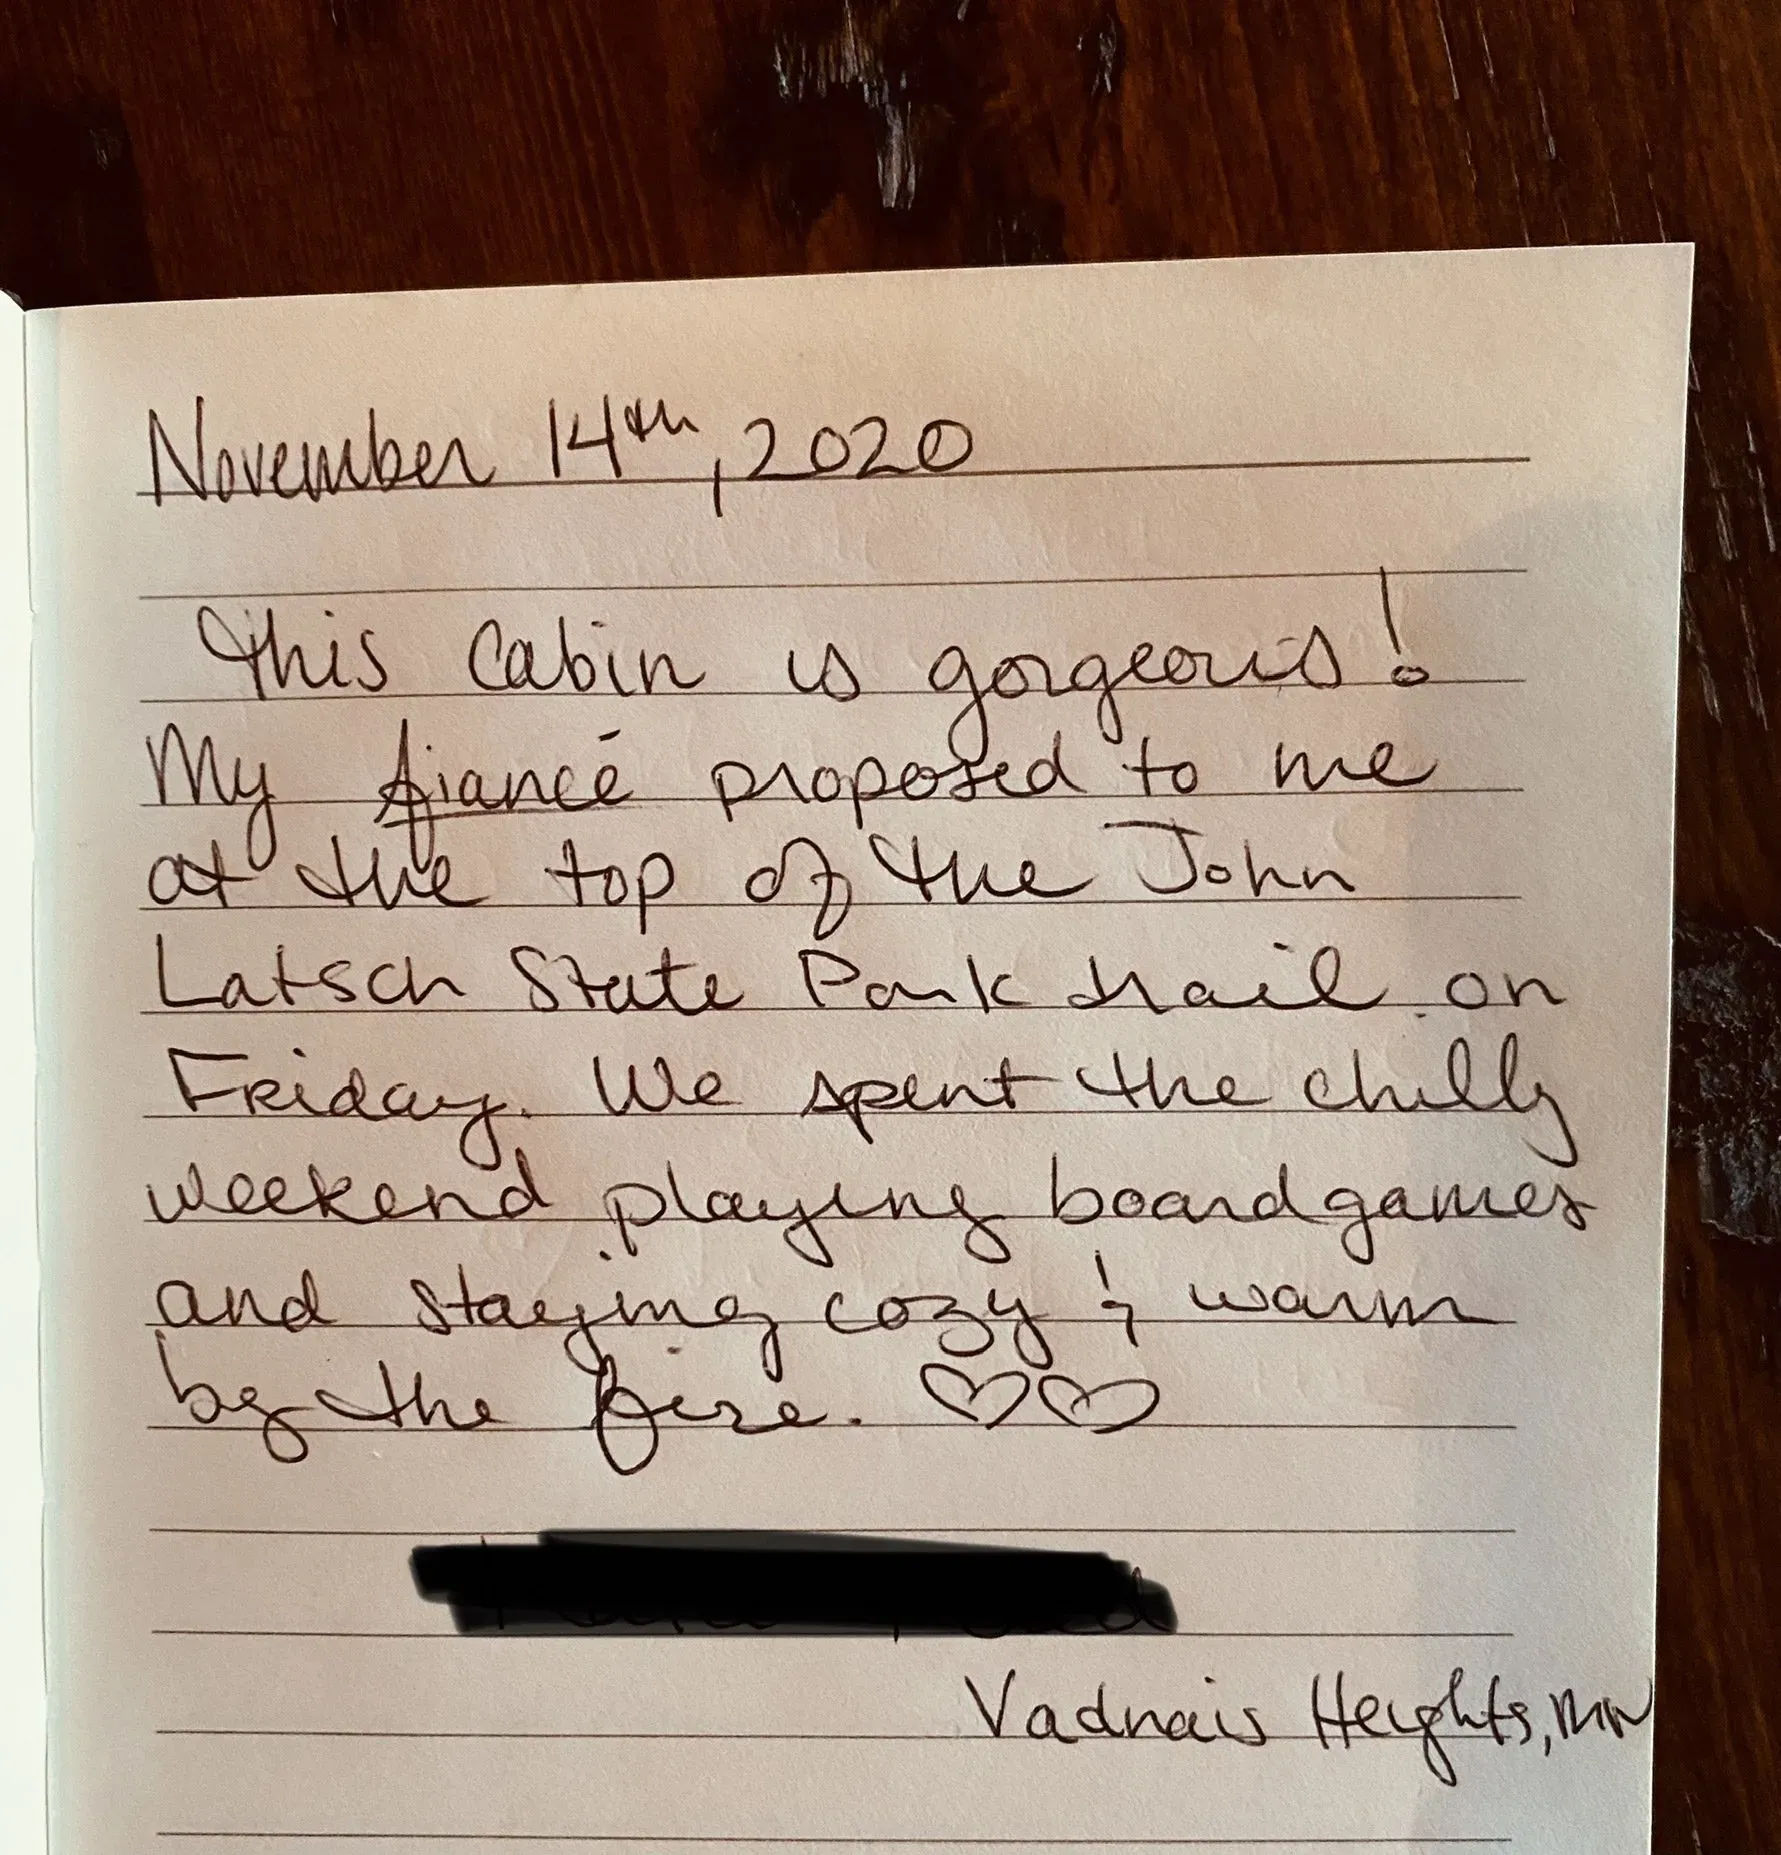 November 14th, 2020
This Cabin is gorgeous!
My fiancé proposed to me
at the top of the John
Latsch State Park trail on
Friday. We spent the chilly
weekend playing boardgames
and staying cozy & warm
by the fire. ♡♡
Vadnais Heights, MN